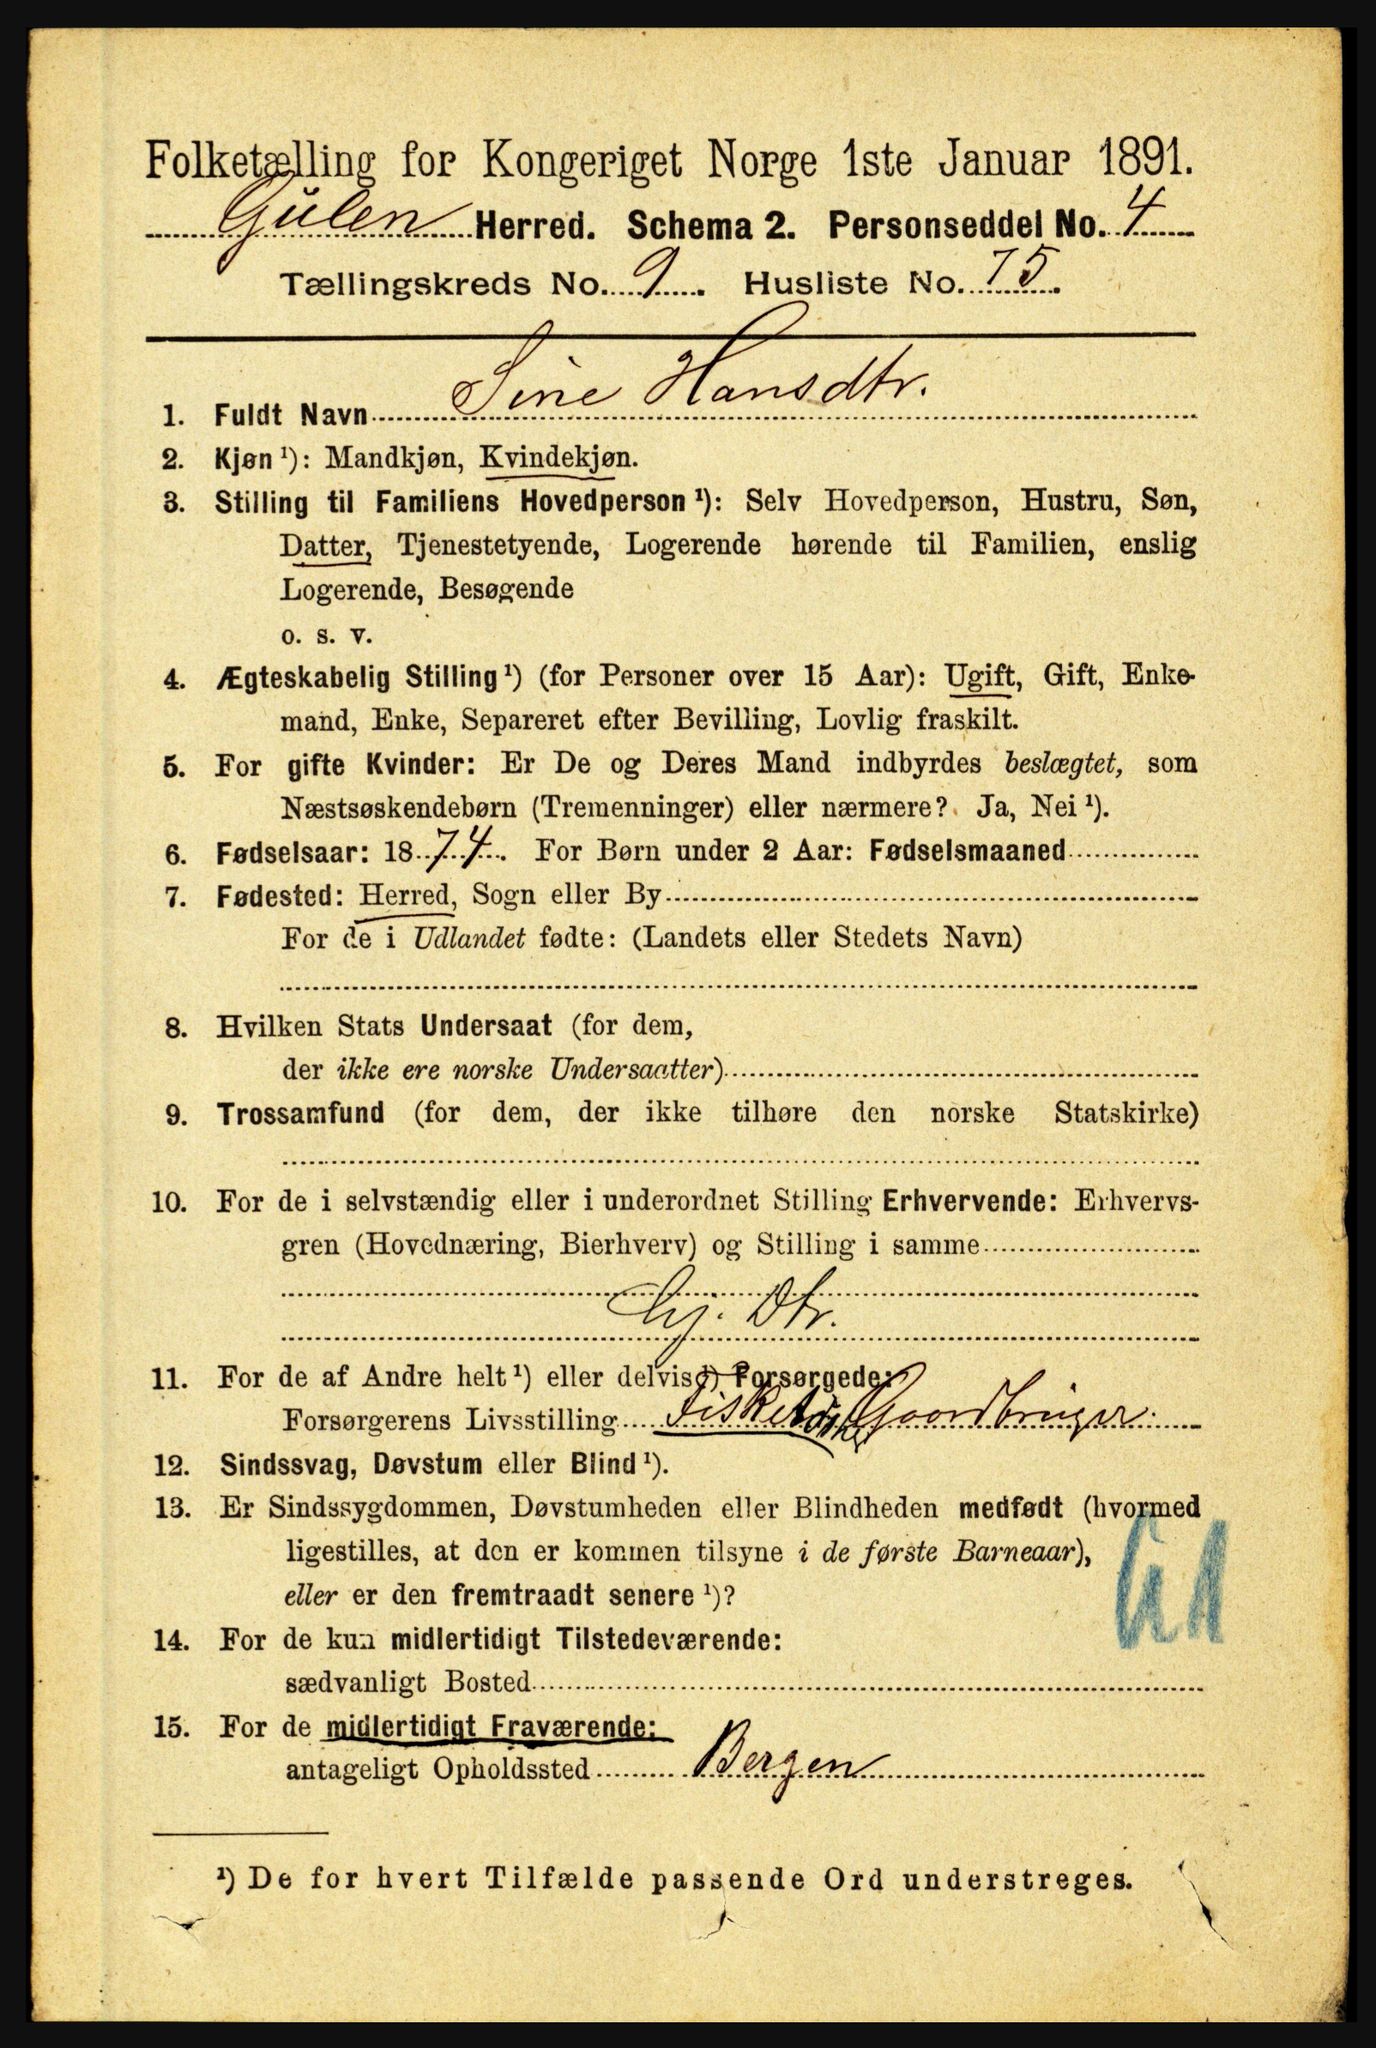 Folketælling for Kongeriget Norge 1ste Januar 1891.
Gulen Herred. Schema 2. Personseddel No. 4
Tællingskreds No. 9. Husliste No. 75.
1. Fuldt Navn Sine Hansdtr.
2. Kjøn ¹): Mandkjøn, Kvindekjøn.
3. Stilling til Familiens Hovedperson ¹): Selv Hovedperson, Hustru, Søn,
Datter, Tjenestetyende, Logerende hørende til Familien, enslig
Logerende, Besøgende
o. s. v.
4. Ægteskabelig Stilling ¹) (for Personer over 15 Aar): Ugift, Gift, Enke-
mand, Enke, Separeret efter Bevilling, Lovlig fraskilt.
5. For gifte Kvinder: Er De og Deres Mand indbyrdes beslægtet, som
Næstsøskendebørn (Tremenninger) eller nærmere? Ja, Nei ¹).
6. Fødselsaar: 1874. For Børn under 2 Aar: Fødselsmaaned
7. Fødested: Herred, Sogn eller By
For de i Udlandet fødte: (Landets eller Stedets Navn)
8. Hvilken Stats Undersaat (for dem,
der ikke ere norske Undersaatter)
9. Trossamfund (for dem, der ikke tilhøre den norske Statskirke)
10. For de i selvstændig eller i underordnet Stilling Erhvervende: Erhvervs-
gren (Hovednæring, Bierhverv) og Stilling i samme
Dtr.
11. For de af Andre helt ¹) eller delvis ¹) Forsørgede:
Forsørgerens Livsstilling Gaardbruger.
12. Sindssvag, Døvstum eller Blind ¹).
13. Er Sindssygdommen, Døvstumheden eller Blindheden medfødt (hvormed
ligestilles, at den er kommen tilsyne i de første Barneaar),
eller er den fremtraadt senere ¹)?
14. For de kun midlertidigt Tilstedeværende:
sædvanligt Bosted
15. For de midlertidigt Fraværende:
antageligt Opholdssted Bergen
¹) De for hvert Tilfælde passende Ord understreges.